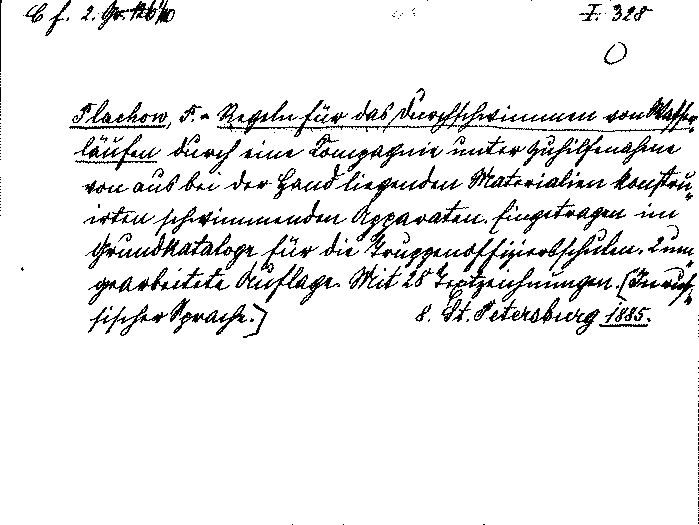 C f. 2. I. 328
Plachow, F. - Regeln für das Durchschwimmen von Wasser-
läufen durch eine Compagnie unter Zuhilfenahme
von aus bei der Hand liegenden Materialien konstru-
irten schwimmenden Apparaten. Eingetragen im
Grundkataloge für die Truppenoffiziersschulen. 2 um-
gearbeitete Auflage. Mit 28 Textzeichnungen. (In rus-
sischer Sprache.)
8. St. Petersburg 1885.